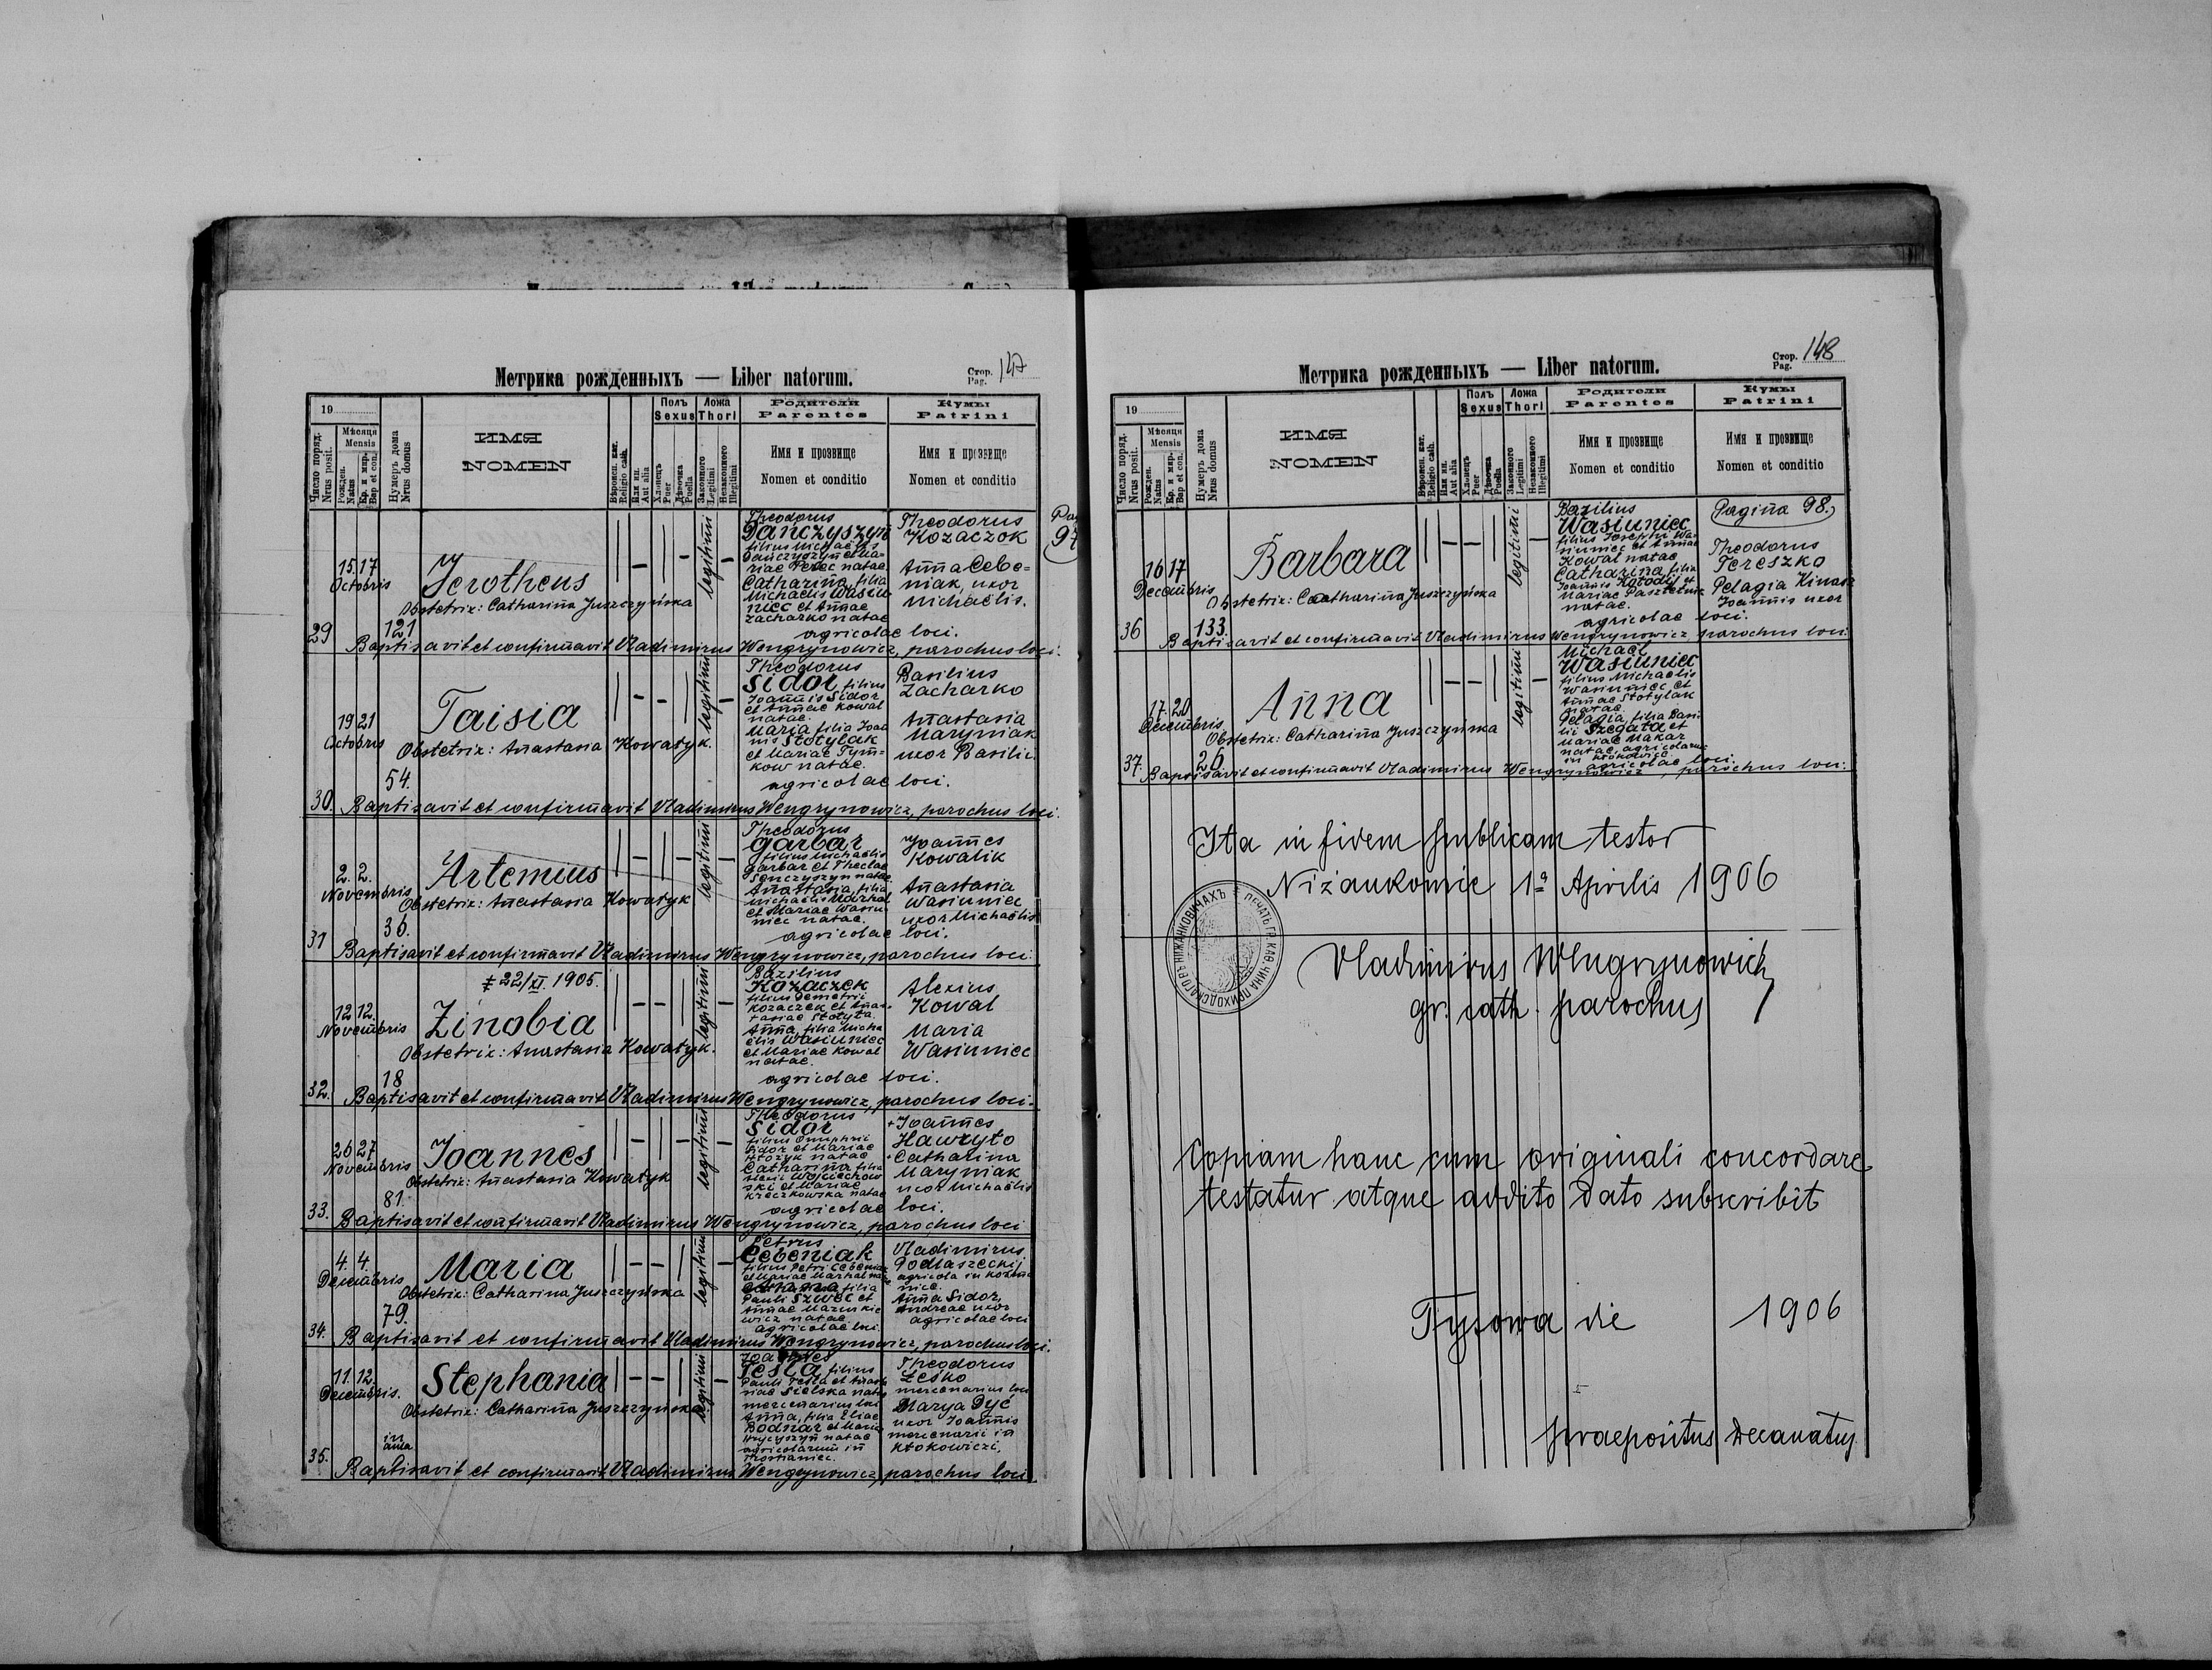 Метрика рожденныхъ — Liber natorum.
Стор. Pag. 147
19
Число поряд. Nrus posit.
Мѣсяця Mensis
Рожден. Natus
Кр. и мир. Bap et con.
Нумеръ дома Nrus domus
ИМЯ
NOMEN
Вѣроисп. кат. Religio cath.
Или ин. Aut alia
Полъ Sexus
Хлопецъ Puer
Дѣвочка Puella
Ложа Thori
Законного Legitimi
Незаконного Illegitimi
Родители
Parentes
Имя и прозвище
Nomen et conditio
Кумы
Patrini
Имя и прозвище
Nomen et conditio
29
15 17
Octobris
121
Jerotheus
Obstetrix: Catharina Juszczyńska
legitimi
Theodorus
Danczyszyn
filius Michaelis
Danczyszyn et Ma-
riae Perec natae.
Catharina, filia
Michaelis Wasiu
niec et Annae
Zacharko natae
agricolae loci.
Theodorus
Kozaczok
Anna Cebe-
niak, uxor
Michaëlis.
Baptisavit et confirmavit Vladimirus Wengrynowicz, parochus loci.
30.
19 21
Octobris
54.
Taisia
Obstetrix: Anastasia Kowatyk.
legitimi
Theodorus
Sidor filius
Joannis Sidor
et Annae Kowal
natae.
Maria filia Joan
nis Stotylak
et Mariae Tym-
kow natae.
agricolae loci.
Basilius
Zacharko
Anastasia
Maryniak
uxor Basilii.
Baptisavit et confirmavit Vladimirus Wengrynowicz, parochus loci.
31
2. 2.
Novembris
36.
Artemius
Obstetrix: Anastasia Kowatyk
legitimi
Theodorus
Garbar
filius Michaëlis
Garbar et Theclae
natae.
Anastasia, filia
Michaëlis Marhal
et Mariae Wasiu-
niec natae.
agricolae loci.
Joannes
Kowalik
Anastasia
Wasiuniec
uxor Michaëlis
Baptisavit et confirmavit Vladimirus Wengrynowicz, parochus loci.
‡ 22/XI. 1905.
32.
12 12.
Novembris
18
Zinobia
Obstetrix: Anastasia Kowatyk.
legitimi
Bazilius
Kozaczek
filius Demetrii
Kozaczek et Anas-
tasiae Stotyta.
Anna, filia Micha
ëlis Wasiuniec
et Mariae Kowal
natae.
agricolae loci.
Alexius
Kowal
Maria
Wasiuniec
Baptisavit et confirmavit Vladimirus Wengrynowicz, parochus loci.
33.
26 27
Novembris
81.
Joannes
Obstetrix: Anastasia Kowatyk
legitimi
Theodorus
Sidor
filius Onuphrii
Sidor et Mariae
natae
Catharina filia
Wojciechow
ski et Mariae
Kraczkowska natae
agricolae loci.
+ Joannes
Hawryto
Catharina
Maryniak
uxor Michaëlis
Baptisavit et confirmavit Vladimirus Wengrynowicz, parochus loci
34.
4. 4.
Decembris
79.
Maria
Obstetrix: Catharina Juszczyńska
legitimi
Petrus
Cebeniak
filius Petri Cebeniak
et Mariae Marhal
filia
Pauli Szwec et
Annae Mazurkie
wicz natae.
agricolae loci.
Vladimirus
Podlaszecki,
agricola in
Anna Sidor,
Andreae uxor
agricolae loci
Baptisavit et confirmavit Vladimirus Wengrynowicz, parochus loci.
35.
11. 12.
Decembris.
in aula
Stephania
Obstetrix: Catharina Juszczyńska
legitimi
Joannes
Testa filius
Pauli Testa et
Sielska natus
mercenarius loci
Anna, filia Eliae
Bodnar et Maria
Hrycyszyn natae
agricolarum in
Theodorus
Leśko
mercenarius loci
Marya Dyć
uxor Joannis
mercenarii in
Ktokowicze,
Baptisavit et confirmavit Vladimirus Wengrynowicz, parochus loci
97
Метрика рожденныхъ — Liber natorum.
Стор. Pag. 148
19
Число поряд. Nrus posit.
Мѣсяця Mensis
Рожден. Natus
Кр. и мир. Bap et con.
Нумеръ дома Nrus domus
ИМЯ
NOMEN
Вѣроисп. кат. Religio cath.
Или ин. Aut alia
Полъ Sexus
Хлопецъ Puer
Дѣвочка Puella
Ложа Thori
Законного Legitimi
Незаконного Illegitimi
Родители
Parentes
Имя и прозвище
Nomen et conditio
Кумы
Patrini
Имя и прозвище
Nomen et conditio
Pagina 98.
36
16 17
Decembris
133.
Barbara
Obstetrix: Catharina Juszczyńska
legitimi
Bazilius
Wasiuniec
filius Josephi Wa-
siuniec et Annae
Kowal natae
Catharina filia
Joannis Kotodij et
Mariae Pasztetnik
natae.
agricolae loci.
Theodorus
Tereszko
Pelagia Kinasz
Joannis uxor
Baptisavit et confirmavit Vladimirus Wengrynowicz parochus loci.
37.
17. 20.
Decembris
26
Anna
Obstetrix: Catharina Juszczyńska
legitimi
Michaël
Wasiuniec
filius Michaelis
Wasiuniec et
Annae Stotylak
natae.
Pelagia, filia Basi-
lii Szegata et
Mariae Makar
natae, agricolarum
in Ktokowice.
agricolae loci.
Baptisavit et confirmavit Vladimirus Wengrynowicz, parochus loci.
Ita in fidem publicam testor
Niżankowice 1ª Aprilis 1906
ПЕЧАТЬ ГР. КАѲ. ЧИНА ПРИХОДСКАГО ВЪ НИЖАНКОВИЧАХЪ
Vladimirus Wengrynowicz
gr. cath. parochus
Copiam hanc cum originali concordare
testatur atque addito dato subscribit
Tysowa die 1906
praepositus Decanatus